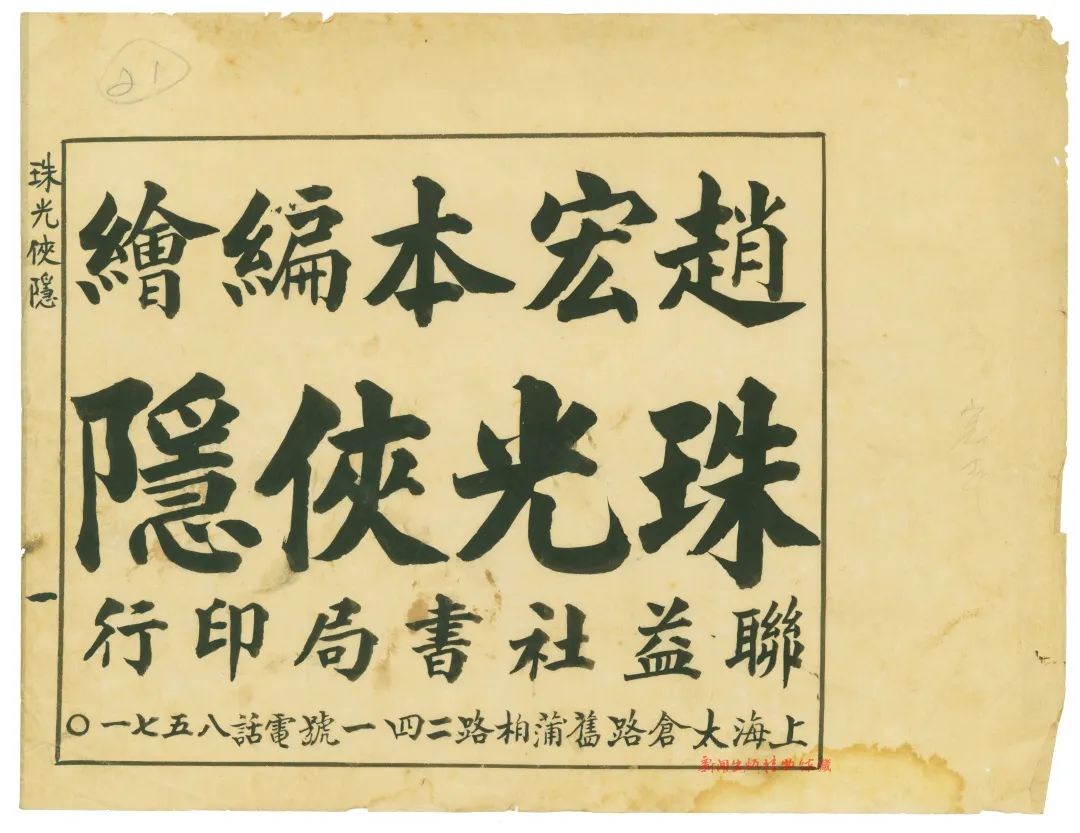 21
趙宏本編繪
珠光俠隱
聯益社書局印行
上海太倉路舊蒲柏路二四一號電話八五七一〇
珠光俠隱
一